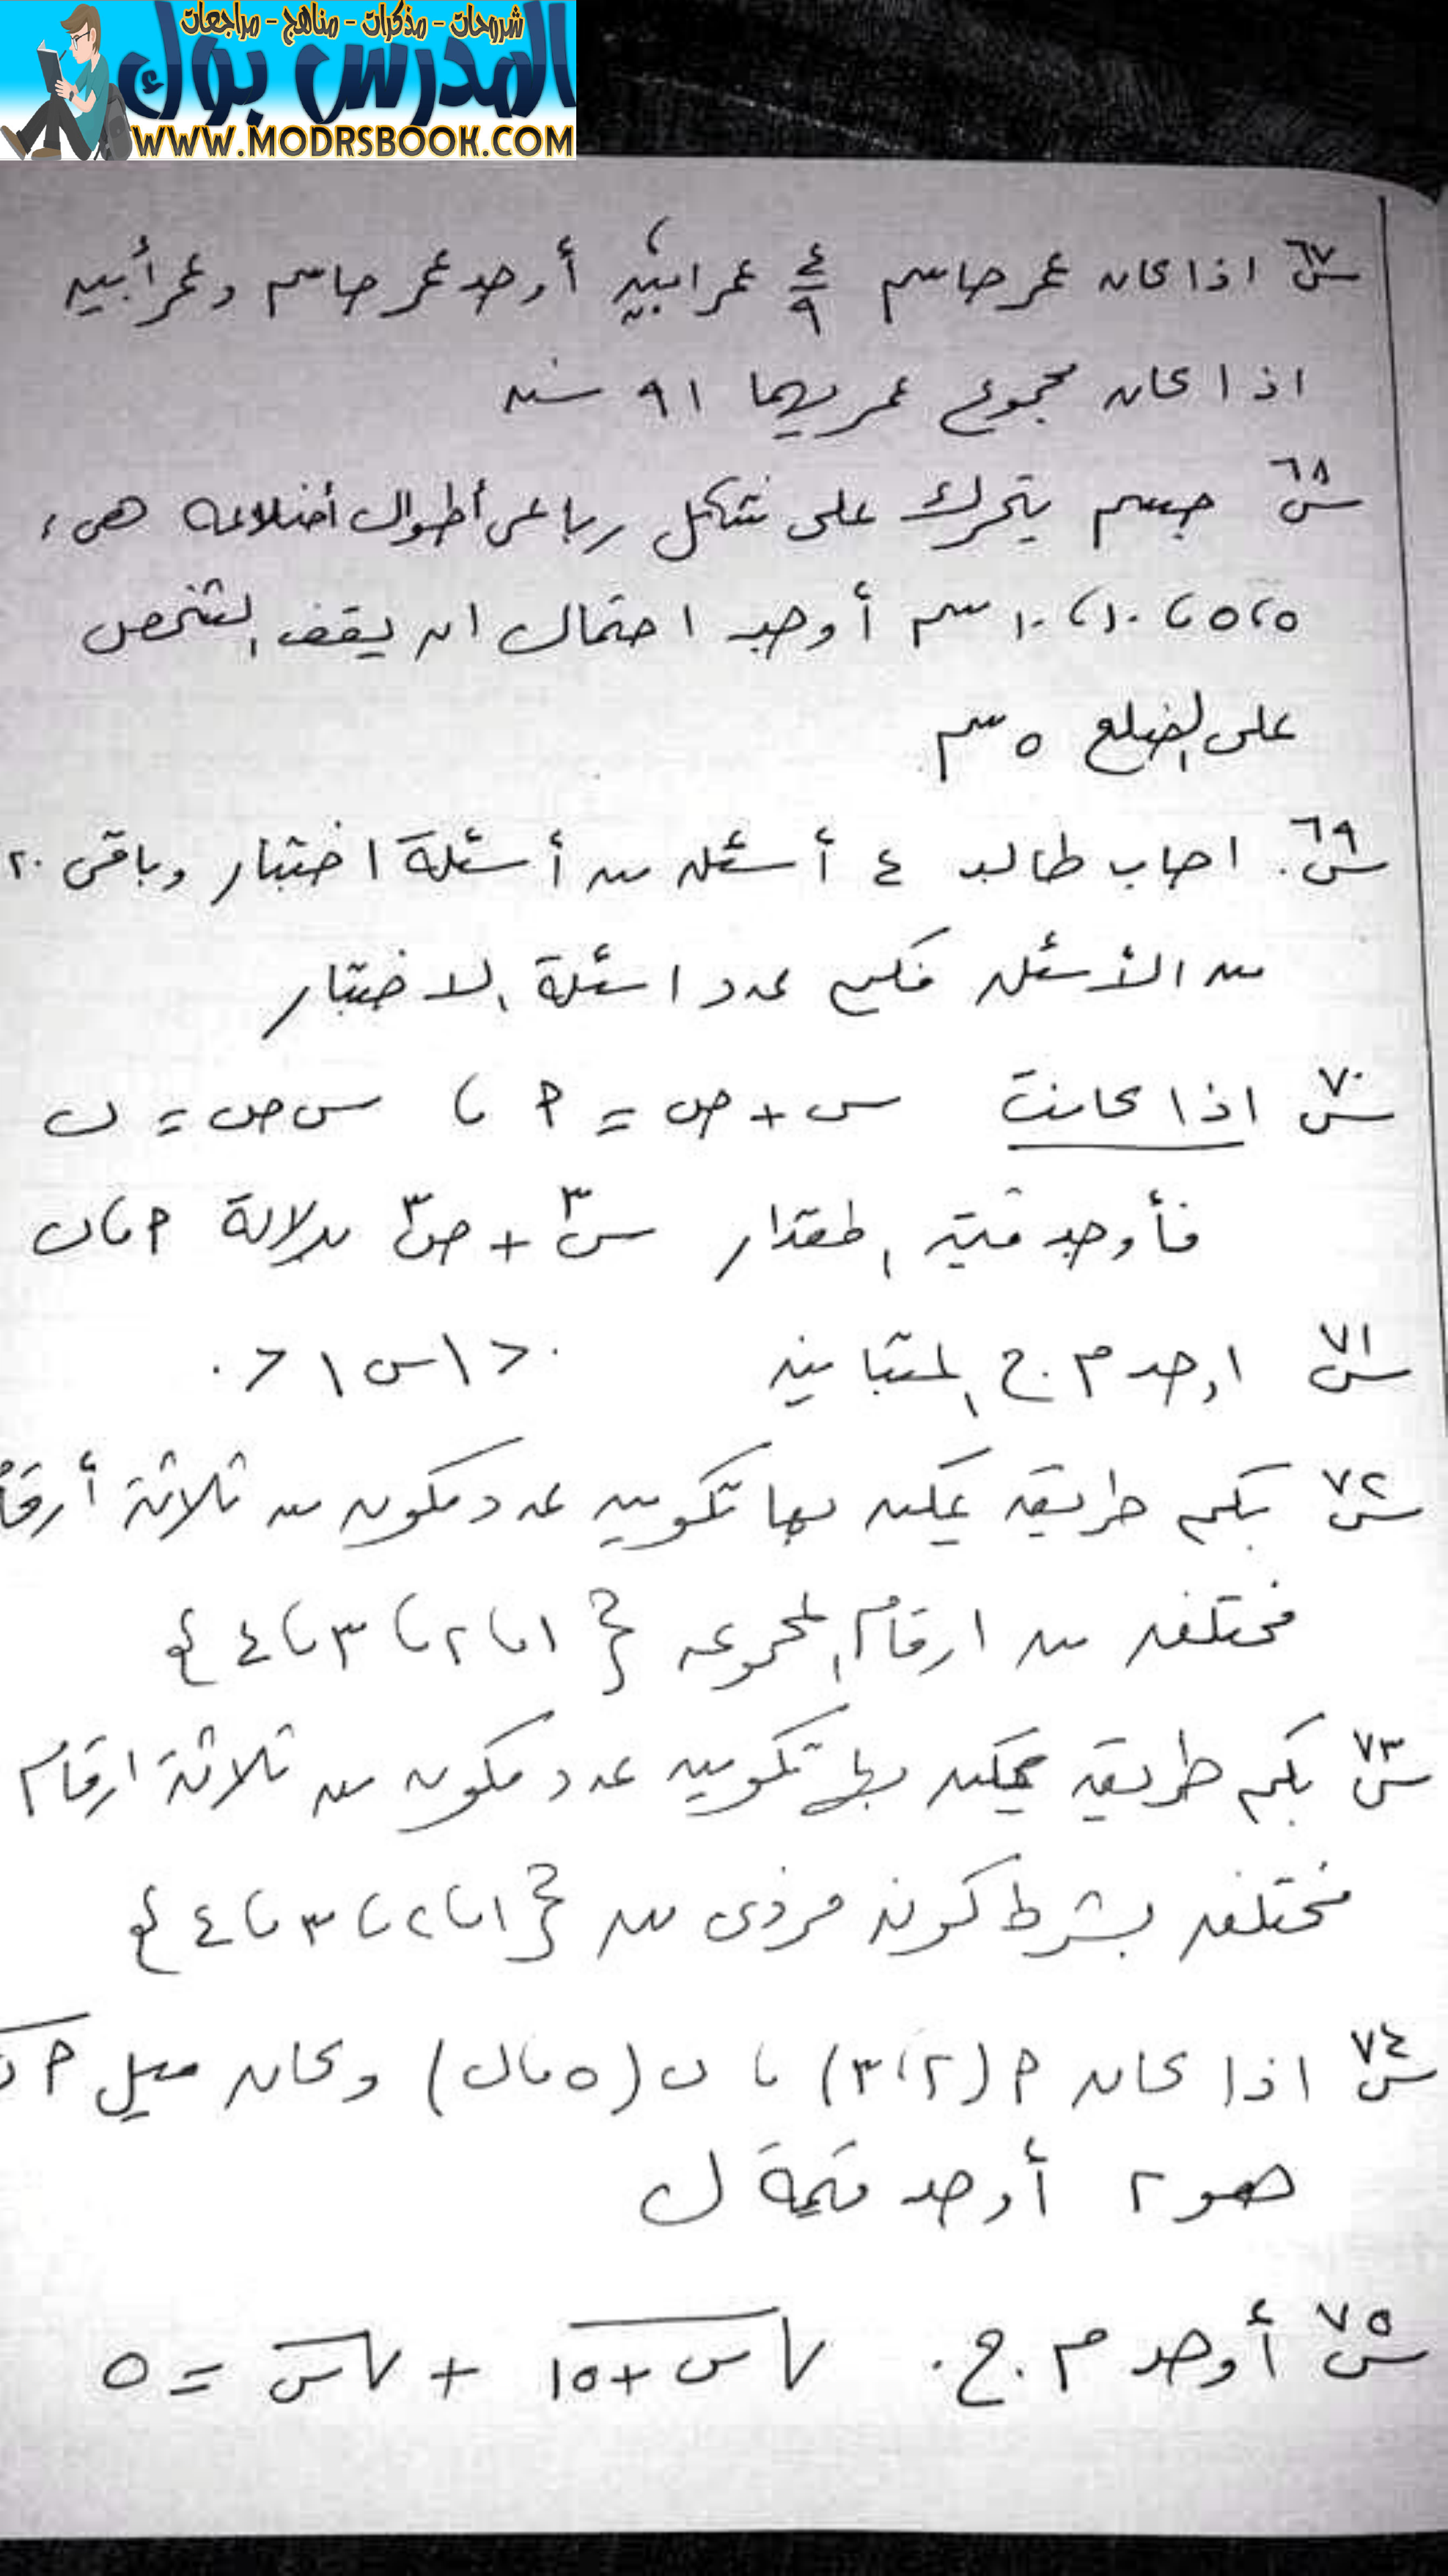 شروحات - مذكرات - مناهج - مراجعات
المدرس بوك
WWW.MODRSBOOK.COM
س٦٧ اذا كان عمر جاسم ٤/٩ عمر ابيه أوجد عمر جاسم وعمر أبيه
اذا كان مجموع عمريهما ٩١ سنه
س٦٨ جسم يتحرك على شكل رباعى أطوال أضلاعه هى
٥، ٥، ١٠، ١٠ سم أوجد احتمال ان يقف الشخص
على الضلع ٥ سم
س٦٩ اجاب طالب ٤ أسئله من أسئلة اختبار وباقى ٢٠
من الأسئله فكم عدد اسئلة الاختبار
س٧٠ اذا كانت س + ص = م ، س ص = ن
فأوجد قيمة المقدار س٣ + ص٣ بدلالة م ، ن
س٧١ اوجد م . ح المتباينه ٠ < |س| < ٠
س٧٢ بكم طريقه يمكن بها تكوين عدد مكون من ثلاثة أرقام
مختلفه من ارقام المجموعه { ١ ، ٢ ، ٣ ، ٤ }
س٧٣ بكم طريقه يمكن بها تكوين عدد مكون من ثلاثة ارقام
مختلفه بشرط كونه فردى من { ١ ، ٢ ، ٣ ، ٤ }
س٧٤ اذا كان م (٢ ، ٣) ، ن (٥ ، ل) وكان ميل م
هو ٢ أوجد قيمة ل
س٧٥ أوجد م . ح . √س + ١٥ + √س = ٥